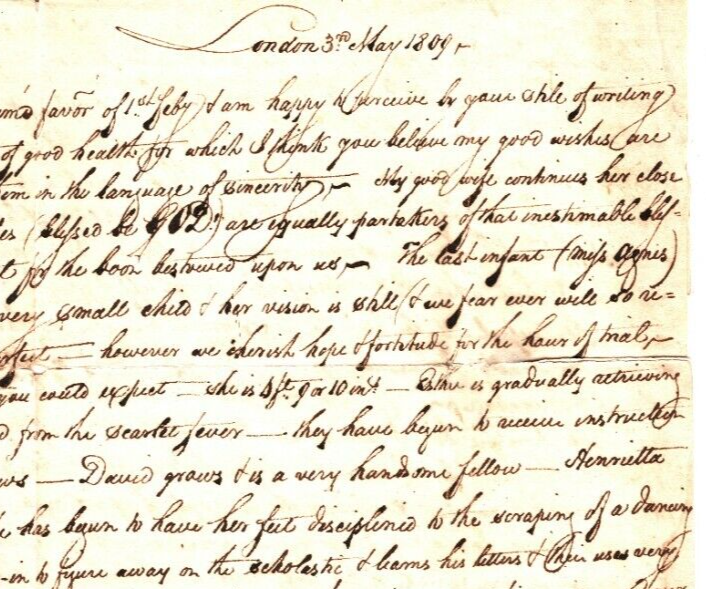 London 3rd May 1809
favor of 1st Feby & am happy to perceive by your stile of writing
of good health for which I think you believe my good wishes are
in the language of sincerity — My good wife continues her close
(blessed be GOD) are equally partakers of that inestimable bles=
for the boon bestowed upon us — The last infant (miss Agnes)
very small child & her vision is still (& we fear ever will so re=
— however we cherish hope & fortitude for the hour of trial —
you could expect — she is 4ft 9 or 10 ins — is gradually retrieving
from the scarlet fever — they have begun to receive instruction
— David grows & is a very handsome fellow — Henrietta
has begun to have her feet disciplined to the scraping of a dancing
-in to figure away on the scholastic & learns his letters & their uses very